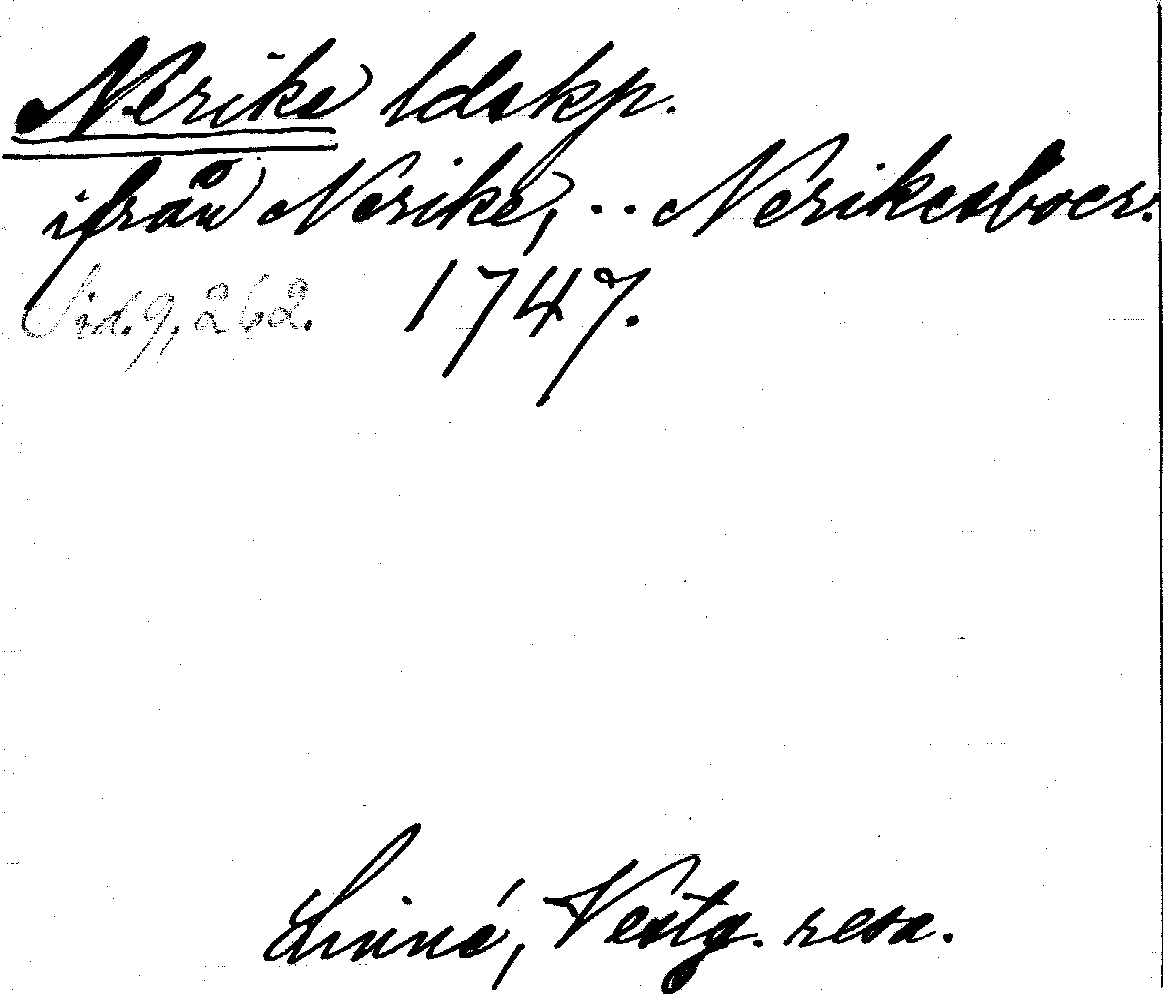 Nerike ldskp.
ifrån Nerike, .. Nerikesboer.
Sid. 9, 262. 1747.
Linné, Vestg. resa.